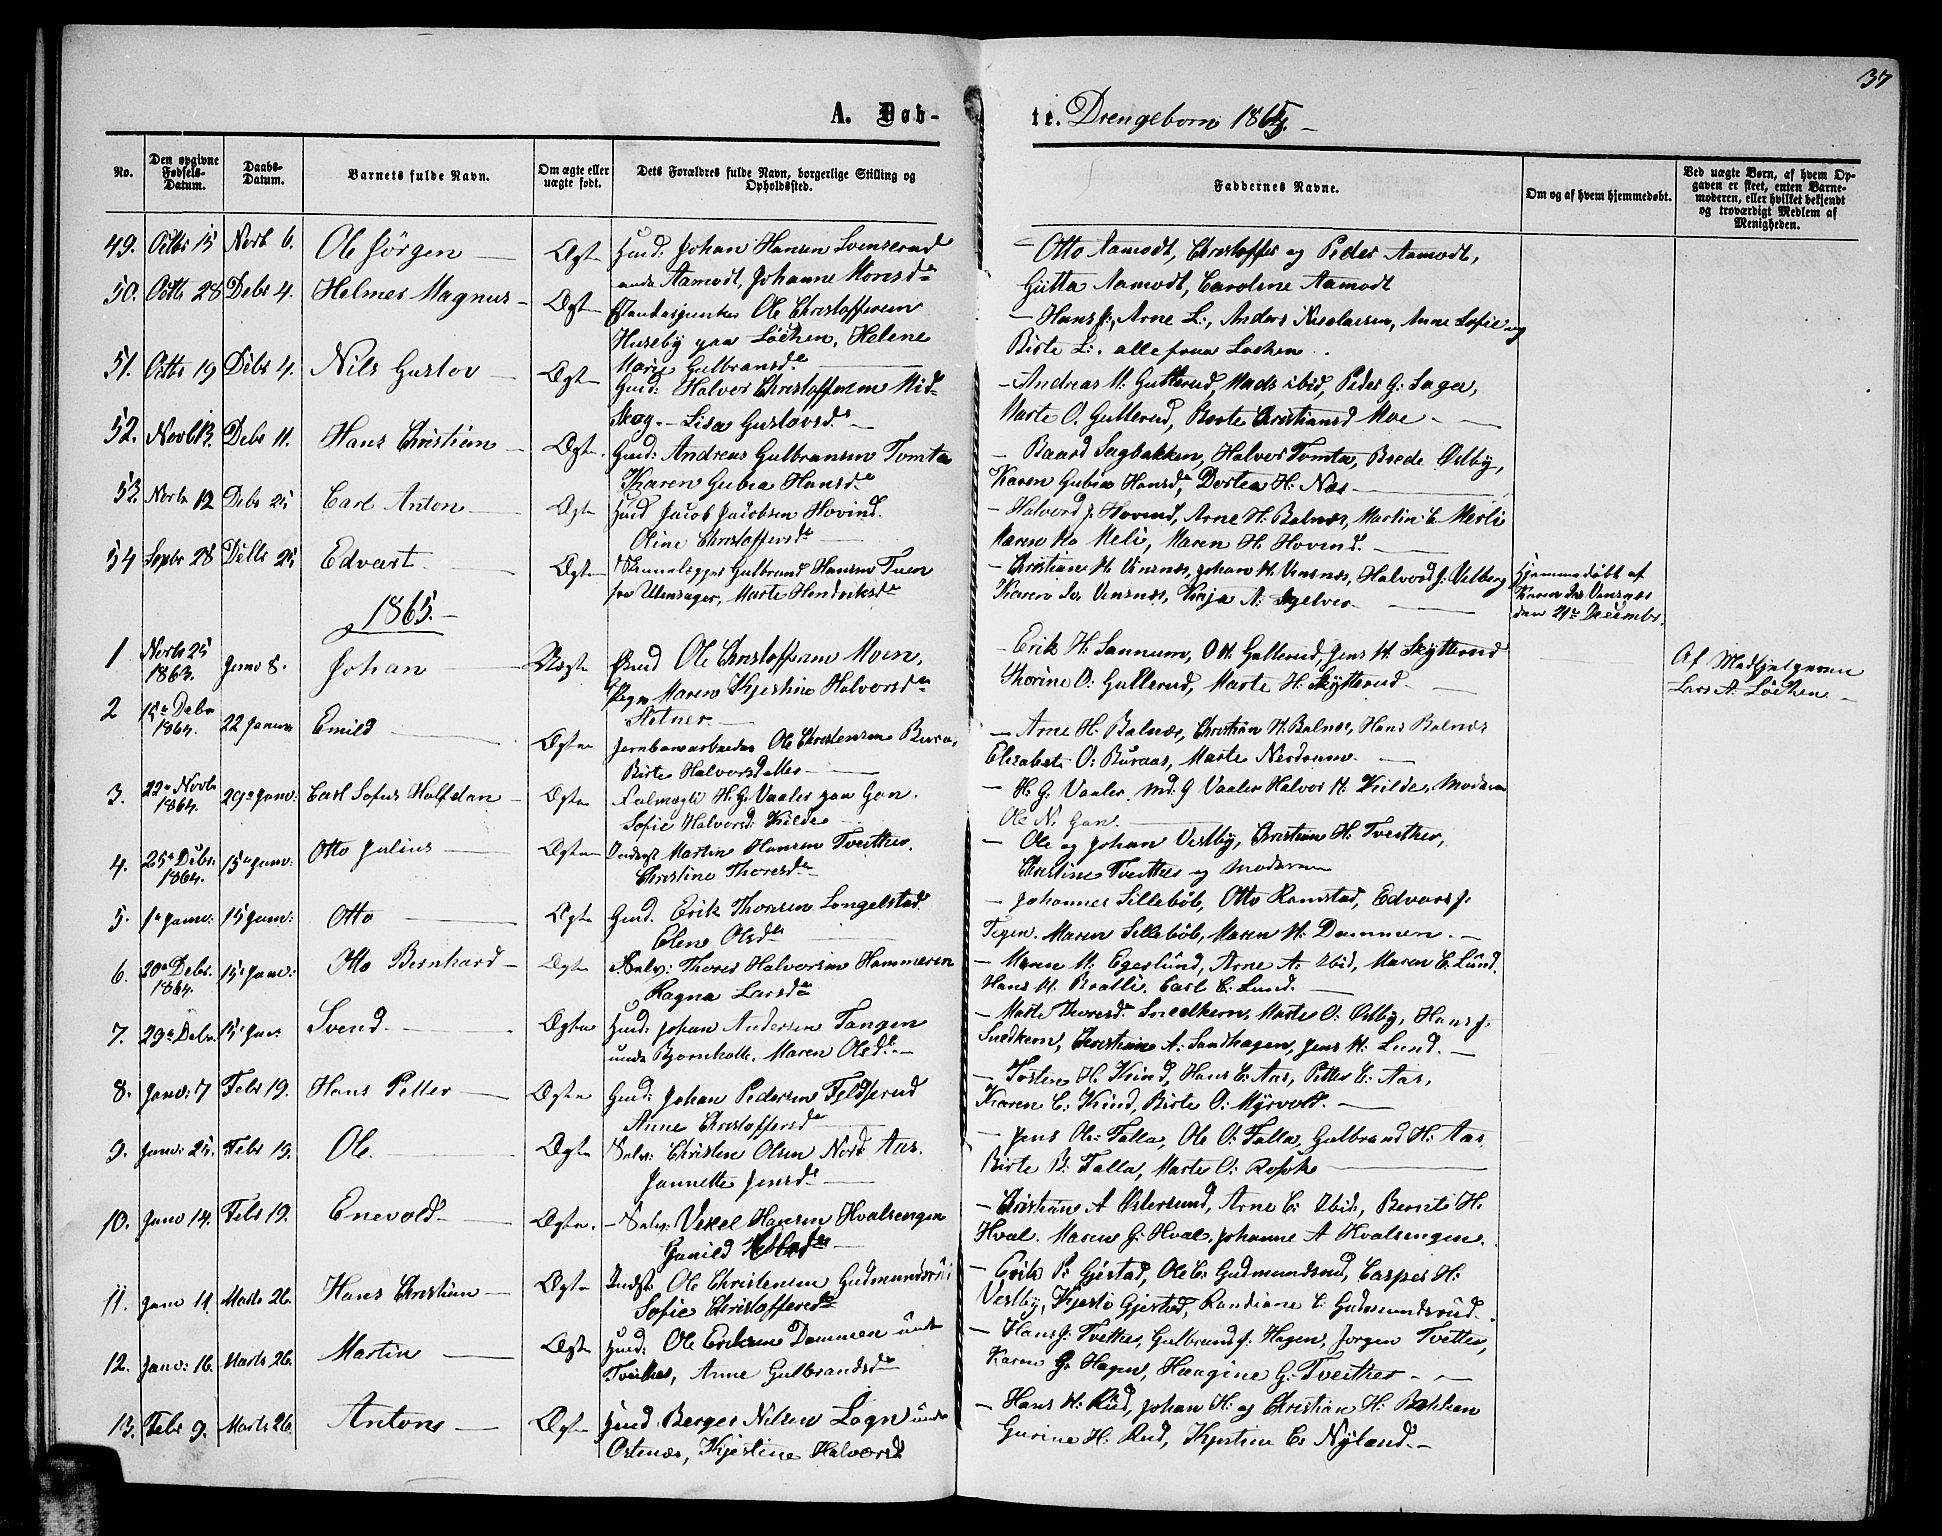 37
A. Døb-
te. Drengeborn 1865.
No.
Den opgivne Fødsels-Datum.
Daabs-Datum.
Barnets fulde Navn.
Om ægte eller uægte født.
Dets Forældres fulde Navn, borgerlige Stilling og Opholdssted.
Faddernes Navne.
Om og af hvem hjemmedøbt.
Ved uægte Børn, af hvem Opgaven er skeet, enten Barnemoderen, eller hvilket bekjendt og troværdigt Medlem af Menigheden.
49. Octbr 15 Novb 6. Ole Jörgen Ægt Huusd: Johan Hansen Svenserud
under Aamodt, Johanne Monsd
Otto Aamodt, Christoffer og Peder Aamodt,
Gutta Aamodt, Caroline Aamodt
50. Octb 28 Debr 4. Helmer Magnus Ægt Ole Christoffersen
Huseby paa Löchen, Helene
Marie Gulbransd
Hans J:, Arne L:, Anders Nicolaisen, Anne Sofie og
Birte L:. alle fraa Lochen
51. Octb 19 Debr 4. Nils Gustov Ægt Huusd: Halvor Christoffersen Mid-
skog. Lisa Gustavsd
Andreas M. Gullerud, Mads ibid, Peder G. Saga,
Marte O. Gullerud, Berte Christiansd Moe
52. Novb 13. Debr 11. Hans Christian Ægt. Huusd: Andreas Gulbransen Tomta
Karen Gubia Hansd
Baard Sagbakken, Halvor Tomta, Brede Ødlby,
Karen Gubia Hansd, Dortea H. Næs
53. Novb 12 Debr 25 Carl Anton Ægt Huusd Jacob Jacobsen Hovind.
Oline Christoffersd
Halvord J. Hovind, Arne H. Balnæs, Martin C. Merli
Maren Meli, Maren H. Hovind.
54 Septbr 28 Debr 25 Edvart Ægt Gulbrand Hansen Tuen
fra Ullensager, Marte Hendriksd
Christian M. Vensnæs, Johan M. Vensnæs, Halvord J. Velberg
Karen Vensnæs, Kaja A. Igelver
Hjemmedöbt af
Karen Vensnæs
den 21 December.
1865.
1 Novb 25
1863. Janv 8. Johan Uægt Huusd Ole Christoffersen Moen,
Pige Maren Kjestine Halvorsd
Holner
Erik H. Sannum, O. H. Gullerud, Jens M. Skytterud
Thorine O. Gullerud, Marte H. Skytterud.
Af Medhjelperen
Lars A. Löchen
2 15 Debr
1864. 22 Januar Emild Ægte Jernbanearbeider Ole Christensen Buraa,
Birte Halvorsdatter
Arne H. Balnæs, Christian H. Balnæs, Hans Balnæs
Elisabeth O. Buraas, Marte Nerdrum
3. 22 Novbr
1864. 29 Janv: Carl Sofus Halfdan Ægte Fulmægti H. G. Vaaler paa Gan.
Sofie Halvorsd: Kilde
H. G. Vaaler. Md. G Vaaler Halvor H. Kilde, Moderen
Ole N. Gan.
4. 25 Debr.
1864. 15 Janv: Otto Julius Ægte Inderst Martin Hansen Tveither.
Christine Thoresd
Ole og Johan Vestby, Christian H. Tveither,
Christine Tveither og Moderen
5. 1 Janv: 15 Janv: Otto Ægte Huusd. Erik Thoresen Longelstad
Elene Olsd
Johannes Sillebøl, Otto Ramstad, Edvars J.
Tegen. Maren Sillebøl, Maren M. Dammen.
6. 20 Debr.
1864. 15 Janv: Otto Bernhard Ægte Selv: Thores Halvorsen Hammeren
Ragna Larsd
Maren M. Egerlund, Arne A. Ibid, Maren E. Lund.
Hans H. Bratli, Carl C. Lund.
7. 29 Debr. 15 Jan. Svend. Ægte Huusd: Johan Andersen Tangen
under Bjornholt. Maren Olsd.
Marte Thoresd Snedkern, Marte O. Ødlby, Hans J.
Snedkern, Christian A. Sandhagen, Jens M. Lund.
8. Janv: 7 Febr 19. Hans Petter Ægte Huusd: Johan Pedersen Feldserud
Anne Christoffersd
Tosten H. Kind, Hans C. Aas, Petter C. Aas,
Karen C. Kind, Birte O. Myrvold.
9. Janv: 25. Febr 19. Ole. Ægte Selv: Christen Olsen Nord Aas.
Jannette Jensd
Jens Ole: Falla, Ole O. Falla, Gulbrand H. Aas
Birte B. Falla, Marte O.
10. Janv 14. Febr 19. Enevold Ægte. Selv: Hansen Hvalsengen
Gunild
Christian A Østersund, Arne C. Ibid, Bernt H.
Hval. Maren G. Hval. Johanne A Hvalsengen.
11. Janv 11. Marts 26. Hans Christian Ægte Indst: Ole Christensen Gudmundsrud
Sofie Christoffersd
Erik P. Gjestad, Ole C. Gudmundsrud, Casper H.
Vestby, Kjersti Gjestad, Randiane C. Gudmundsrud.
12. Janv: 16. Marts 26. Martin Ægte Huusd: Ole Eriksen Dammen under
Tveither, Anne Gulbrandsd
Hans J. Tveither, Gulbrand J. Hagen, Jorgen Tvetter,
Karen G. Hagen, Haagine G. Tveither
13. Febr 9. Marts 26. Anton Ægte Huusd Berger Nilsen Logn under
Ostenæs, Kjestine Halvorsd
Hans H. Rud, Johan H. og Christian H. Bakken
Gurine H. Rud, Kjestine E. Nyland.